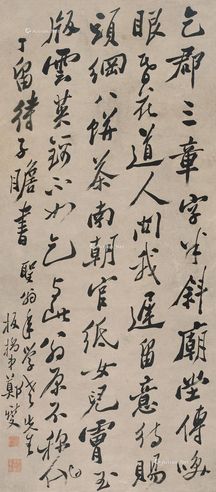 乞郡三章字半斜廟堂傳笑
眼昏花道人問我遲留意待賜
頭綱八餅茶南朝官紙女兒膚玉
版雲英不如乞與此翁原不稱
留待子瞻書 聖翁年學老先生
板橋弟鄭燮